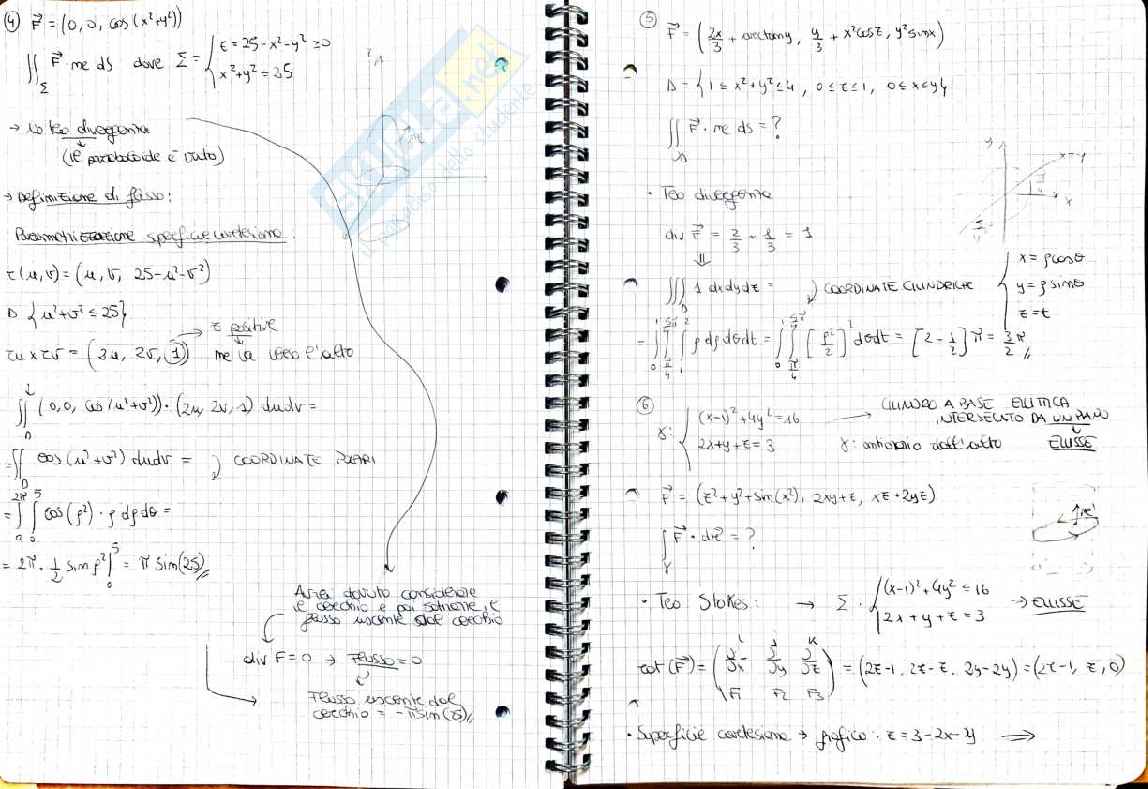 ④ F⃗ = (0, 0, cos(x²+y²))
∬_Σ F⃗ · ne dS dove Σ = { z = 25 - x² - y² ≥ 0
x² + y² = 25
→ No teo divergenza
(il paraboloide è vuoto)
→ Definizione di flusso:
Parametrizzazione superficie cartesiana:
r(u,v) = (u, v, 25-u²-v²)
D {u²+v² ≤ 25}
ru × rv = (2u, 2v, 1) → z positive
ne va verso l'alto
∬_D (0, 0, cos(u²+v²)) · (2u, 2v, 1) dudv =
= ∬_D cos(u²+v²) dudv = ) COORDINATE POLARI
= ∫₀^2π ∫₀^5 cos(ρ²) · ρ dρdθ =
= 2π · 1/2 sin ρ² |₀^5 = π sin(25)
Avrei dovuto considerare
il cerchio e poi sottrarre il
flusso uscente dal cerchio
div F = 0 → Flusso = 0
Flusso uscente dal
cerchio = -π sin(25)
⑤ F⃗ = (2x/3 + arctany, y/3 + x²cosz, y²sinx)
D = {1 ≤ x²+y² ≤ 4, 0 ≤ z ≤ 1, 0 ≤ x < y}
∬ F⃗ · ne ds = ?
y x=y
π/4 x
· Teo divergenza
div F⃗ = 2/3 + 1/3 = 1
⇓
∭_D 1 dxdydz = ) COORDINATE CILINDRICHE { x = ρcosθ
y = ρ sinθ
z = t
= ∫₀^1 ∫_π/4^5π/4 ∫₁^2 ρ dρ dθdt = ∫₀^1 ∫_π/4^5π/4 [ρ²/2]₁^2 dθdt = [2 - 1/2] π = 3/2 π
⑥ γ: { (x-1)² + 4y² = 16 → CILINDRO A BASE ELLITTICA
INTERSECATO DA UN PIANO
2x+y+z = 3 γ: antiorario dall'alto ELLISSE
F⃗ = (z²+y²+sin(x²), 2xy+z, xz+2yz)
∫_γ F⃗ · dr⃗ = ?
· Teo Stokes: → Σ : { (x-1)² + 4y² = 16
2x + y + z = 3 → ELLISSE
rot(F⃗) = ( i j k
∂/∂x ∂/∂y ∂/∂z
F1 F2 F3 ) = (2z-1, 2z-z, 2y-2y) = (2z-1, z, 0)
· Superficie cartesiana → grafico: z = 3-2x-y ⟹